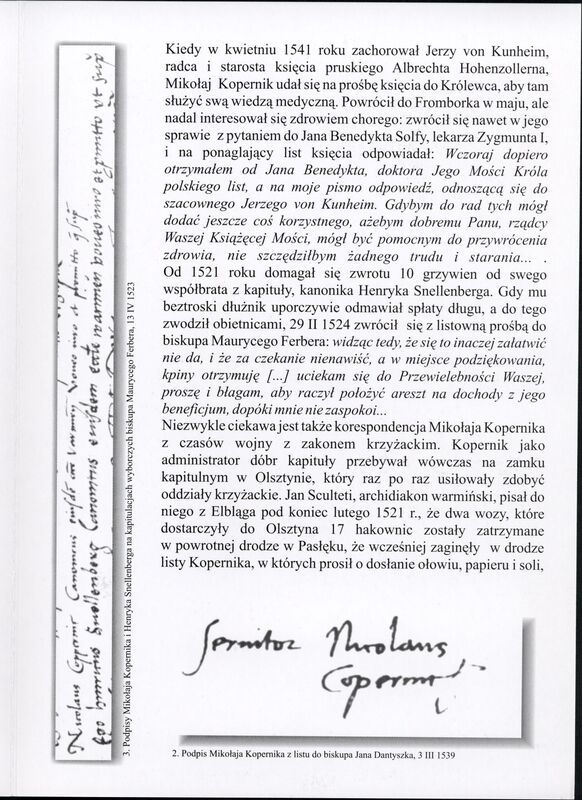 Kiedy w kwietniu 1541 roku zachorował Jerzy von Kunheim,
radca i starosta księcia pruskiego Albrechta Hohenzollerna,
Mikołaj Kopernik udał się na prośbę księcia do Królewca, aby tam
służyć swą wiedzą medyczną. Powrócił do Fromborka w maju, ale
nadal interesował się zdrowiem chorego: zwrócił się nawet w jego
sprawie z pytaniem do Jana Benedykta Solfy, lekarza Zygmunta I,
i na ponaglający list księcia odpowiadał: Wczoraj dopiero
otrzymałem od Jana Benedykta, doktora Jego Mości Króla
polskiego list, a na moje pismo odpowiedź, odnoszącą się do
szacownego Jerzego von Kunheim. Gdybym do rad tych mógł
dodać jeszcze coś korzystnego, ażebym dobremu Panu, rządcy
Waszej Książęcej Mości, mógł być pomocnym do przywrócenia
zdrowia, nie szczędziłbym żadnego trudu i starania... .
Od 1521 roku domagał się zwrotu 10 grzywien od swego
współbrata z kapituły, kanonika Henryka Snellenberga. Gdy mu
beztroski dłużnik uporczywie odmawiał spłaty długu, a do tego
zwodził obietnicami, 29 II 1524 zwrócił się z listowną prośbą do
biskupa Maurycego Ferbera: widząc tedy, że się to inaczej załatwić
nie da, i że za czekanie nienawiść, a w miejsce podziękowania,
kpiny otrzymuję [...] uciekam się do Przewielebności Waszej,
proszę i błagam, aby raczył położyć areszt na dochody z jego
beneficjum, dopóki mnie nie zaspokoi...
Niezwykle ciekawa jest także korespondencja Mikołaja Kopernika
z czasów wojny z zakonem krzyżackim. Kopernik jako
administrator dóbr kapituły przebywał wówczas na zamku
kapitulnym w Olsztynie, który raz po raz usiłowały zdobyć
oddziały krzyżackie. Jan Sculteti, archidiakon warmiński, pisał do
niego z Elbląga pod koniec lutego 1521 r., że dwa wozy, które
dostarczyły do Olsztyna 17 hakownic zostały zatrzymane
w powrotnej drodze w Pasłęku, że wcześniej zaginęły w drodze
listy Kopernika, w których prosił o dosłanie ołowiu, papieru i soli,
Nicolaus
2. Podpis Mikołaja Kopernika z listu do biskupa Jana Dantyszka, 3 III 1539
3. Podpisy Mikołaja Kopernika i Henryka Snellenberga na kapitulacjach wyborczych biskupa Maurycego Ferbera, 13 IV 1523